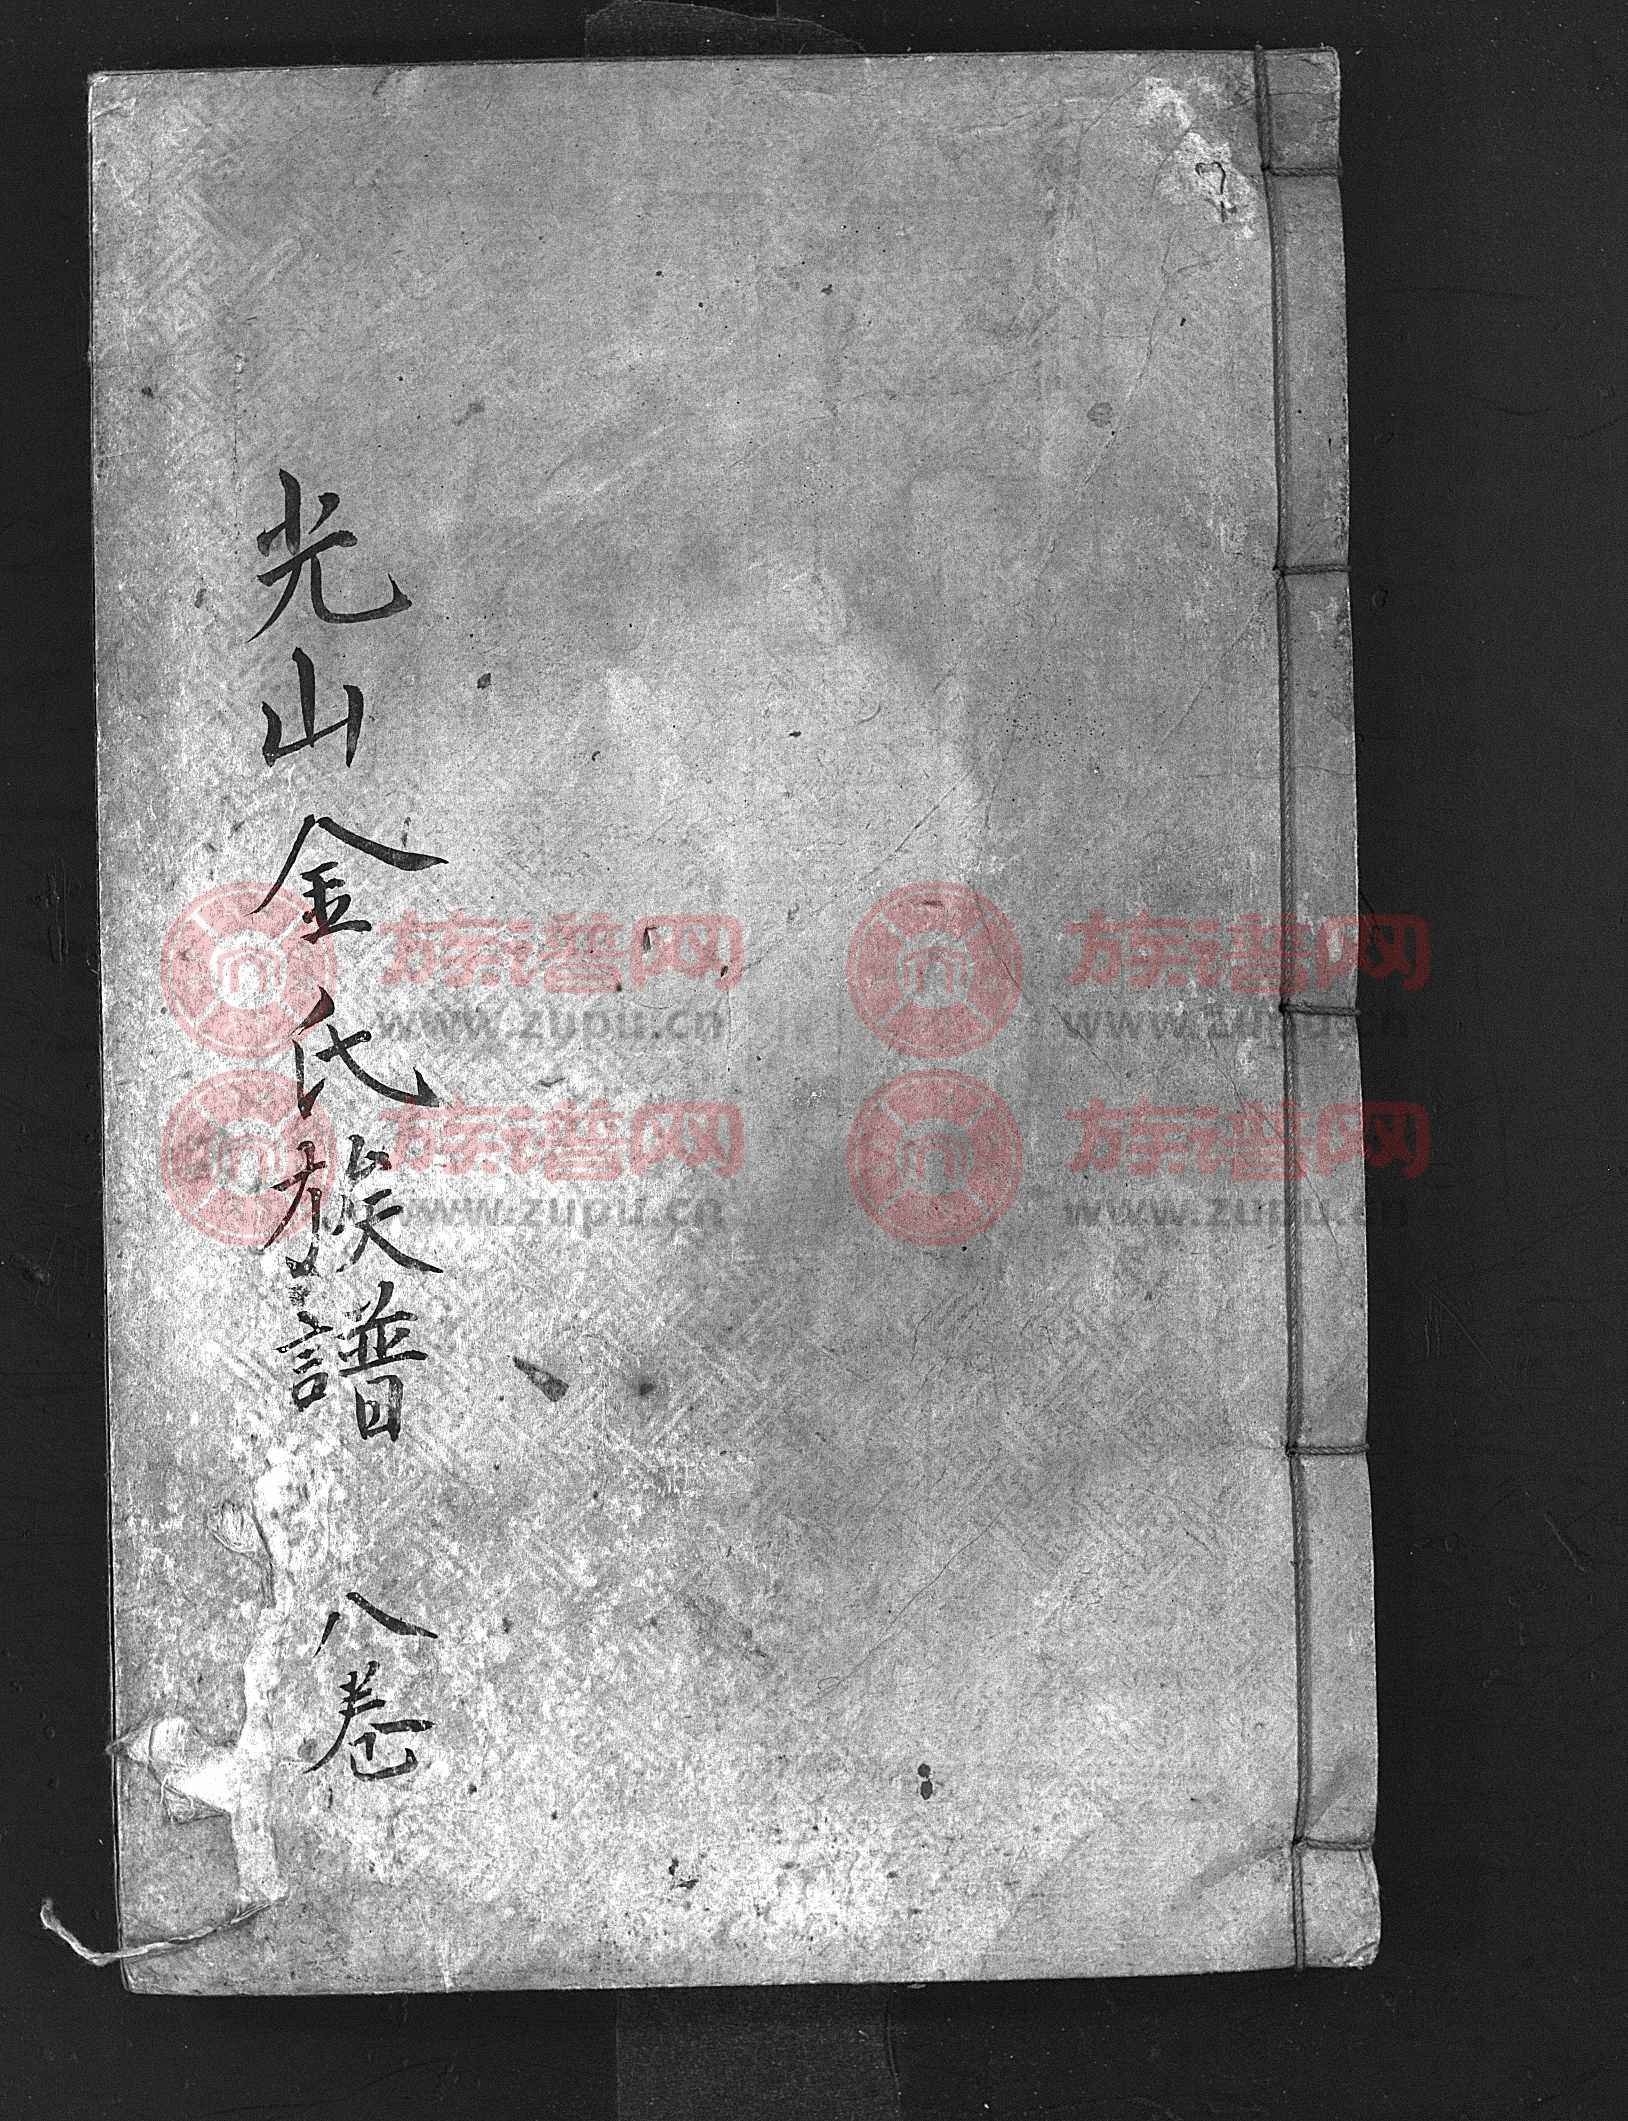 光山金氏族譜
八卷
族谱网 www.zupu.cn
族谱网 www.zupu.cn
族谱网 www.zupu.cn
族谱网 www.zupu.cn